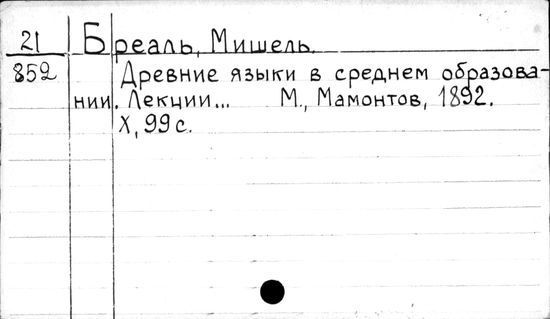 21 Бреаль, Мишель.
852 Древние языки в среднем образова-
нии. Лекции... М., Мамонтов, 1892.
X, 99 с.